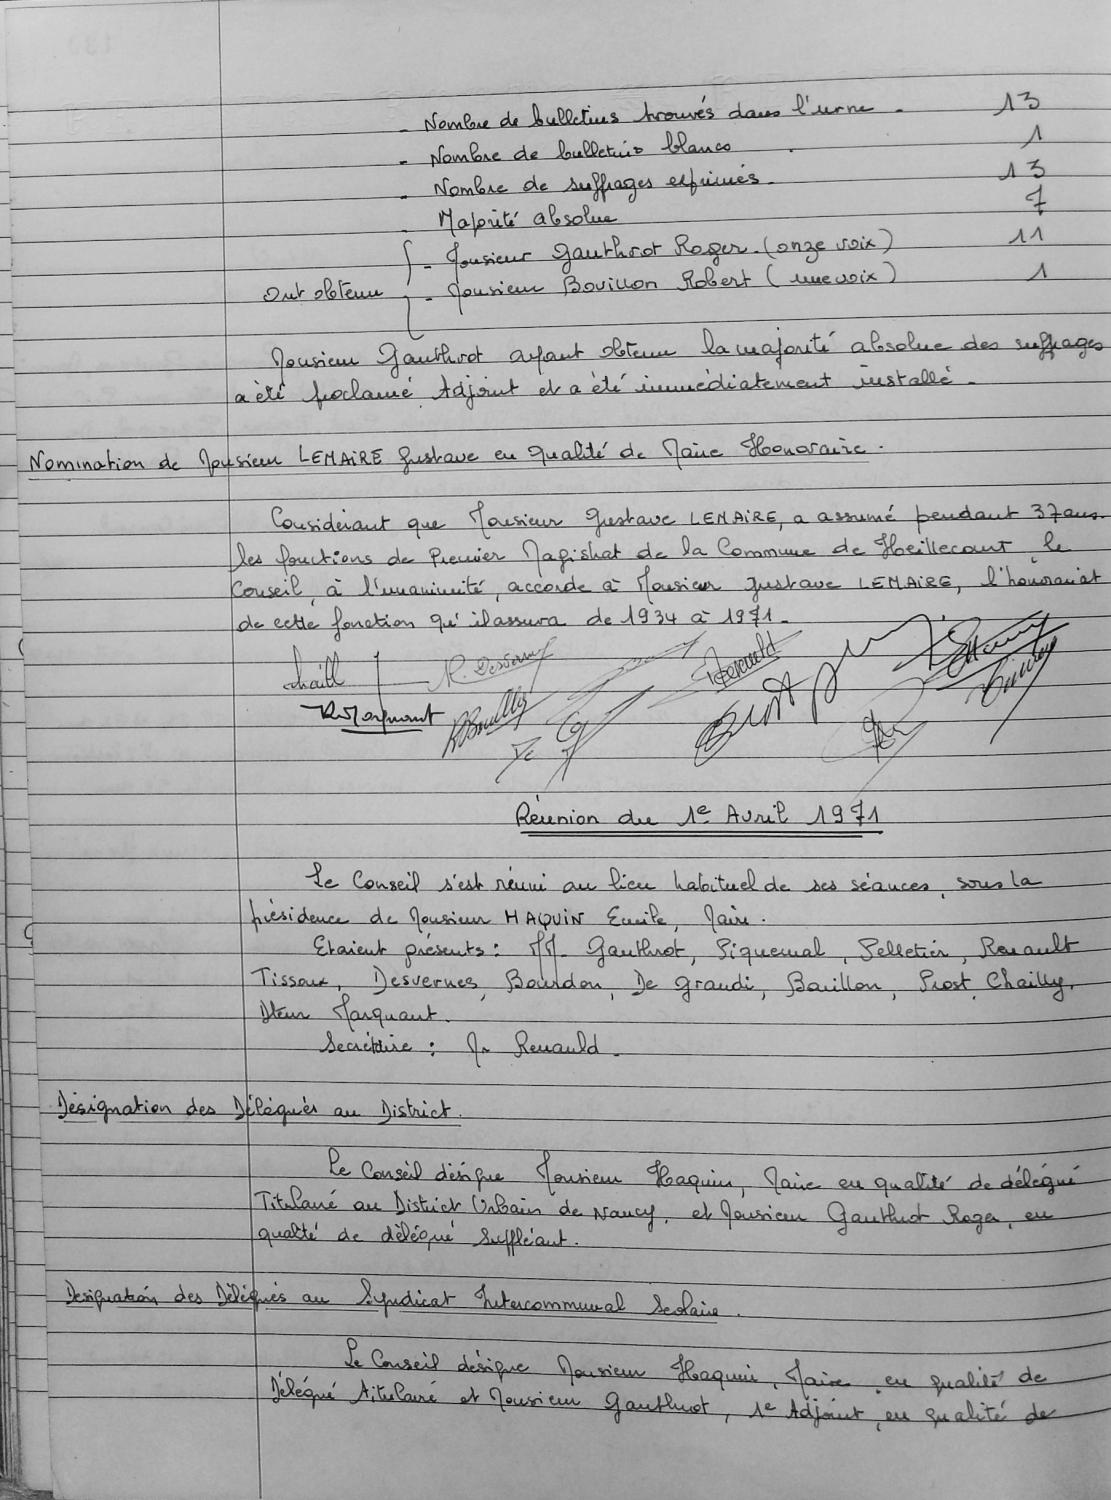 - Nombre de bulletins trouvés dans l'urne - 13
- Nombre de bulletins blancs . 1
- Nombre de suffrages exprimés - 13
. Majorité absolue 7
- Monsieur Gauthrot Roger (onze voix) 11
Ont obtenu - Monsieur Bouillon Robert (une voix) 1
Monsieur Gauthrot ayant obtenu la majorité absolue des suffrages
a été proclamé Adjoint et a été immédiatement installé -
Nomination de Monsieur LEMAIRE Gustave en qualité de Maire Honoraire.
Considérant que Monsieur Gustave LEMAIRE, a assumé pendant 37 ans
les fonctions de Premier Magistrat de la Commune de Heillecourt, le
Conseil, à l'unanimité, accorde à Monsieur Gustave LEMAIRE, l'honorariat
de cette fonction qu'il assura de 1934 à 1971 -
Chaill R. Desverne Renauld
R. Marquant R Bouillon
Réunion du 1e Avril 1971
Le Conseil s'est réuni au lieu habituel de ses séances, sous la
présidence de Monsieur HAQUIN Emile, Maire.
Etaient présents : MM. Gauthrot, Piquemal, Pelletier, Renault
Tissoux, Desvernes, Bourdon, De Grandi, Bouillon, Prost, Chailly,
Marquant.
Secrétaire : M. Renauld -
Désignation des Délégués au District.
Le Conseil désigne Monsieur Haquin, Maire en qualité de délégué
Titulaire au District Urbain de Nancy, et Monsieur Gauthrot Roger, en
qualité de délégué Suppléant.
Désignation des Délégués au Syndicat Intercommunal Scolaire.
Le Conseil désigne Monsieur Haquin, Maire, en qualité de
Délégué Titulaire et Monsieur Gauthrot, 1e Adjoint, en qualité de